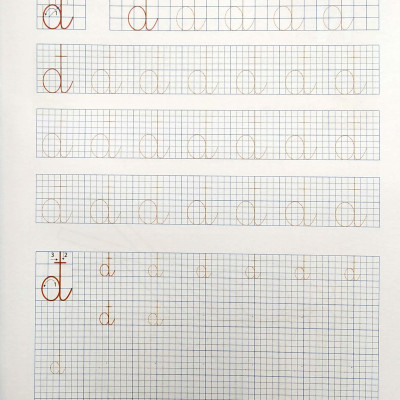 d d d d d d
đ đ đ đ đ đ đ
đ đ đ đ đ đ đ
đ đ đ đ đ đ đ
3 2
1
đ đ đ đ đ đ đ
đ đ
đ